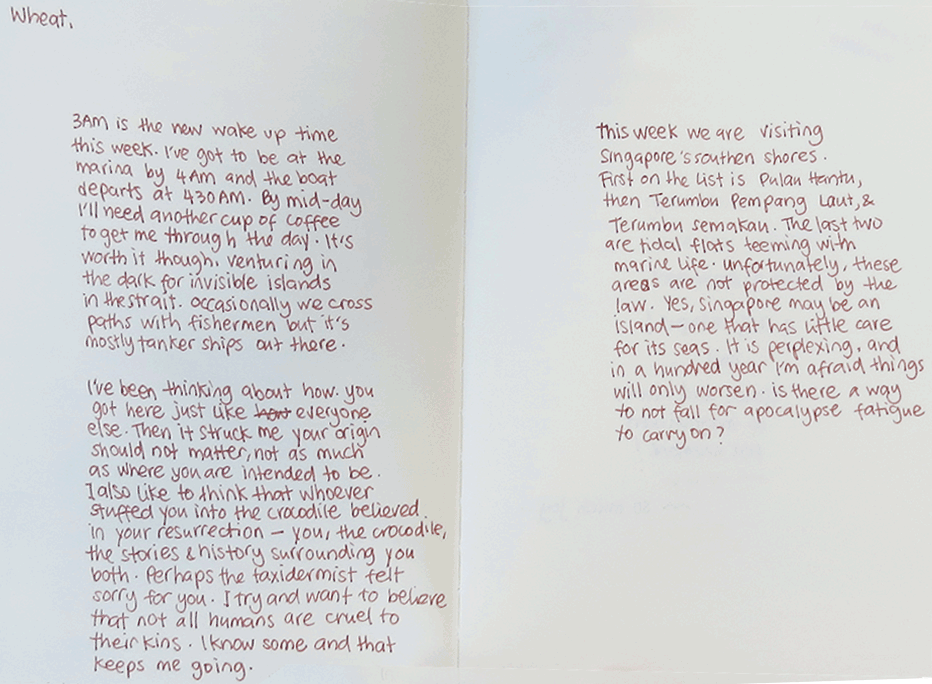 Wheat,
3AM is the new wake up time
this week. I've got to be at the
marina by 4AM and the boat
departs at 430AM. By mid-day
I'll need another cup of coffee
to get me through the day. It's
worth it though, venturing in
the dark for invisible islands
in the strait. occasionally we cross
paths with fishermen but it's
mostly tanker ships out there.
I've been thinking about how you
got here just like everyone
else. Then it struck me your origin
should not matter, not as much
as where you are intended to be.
I also like to think that whoever
stuffed you into the crocodile believed
in your resurrection – you, the crocodile,
the stories & history surrounding you
both. Perhaps the taxidermist felt
sorry for you. I try and want to believe
that not all humans are cruel to
their kins. I know some and that
keeps me going.
this week we are visiting
Singapore's southen shores.
First on the list is Pulau Hantu,
then Terumbu Pempang Laut, &
Terumbu semakau. The last two
are tidal flats teeming with
marine life. unfortunately, these
areas are not protected by the
law. Yes, Singapore may be an
island – one that has little care
for its seas. It is perplexing, and
in a hundred year I'm afraid things
will only worsen. is there a way
to not fall for apocalypse fatigue
to carry on?